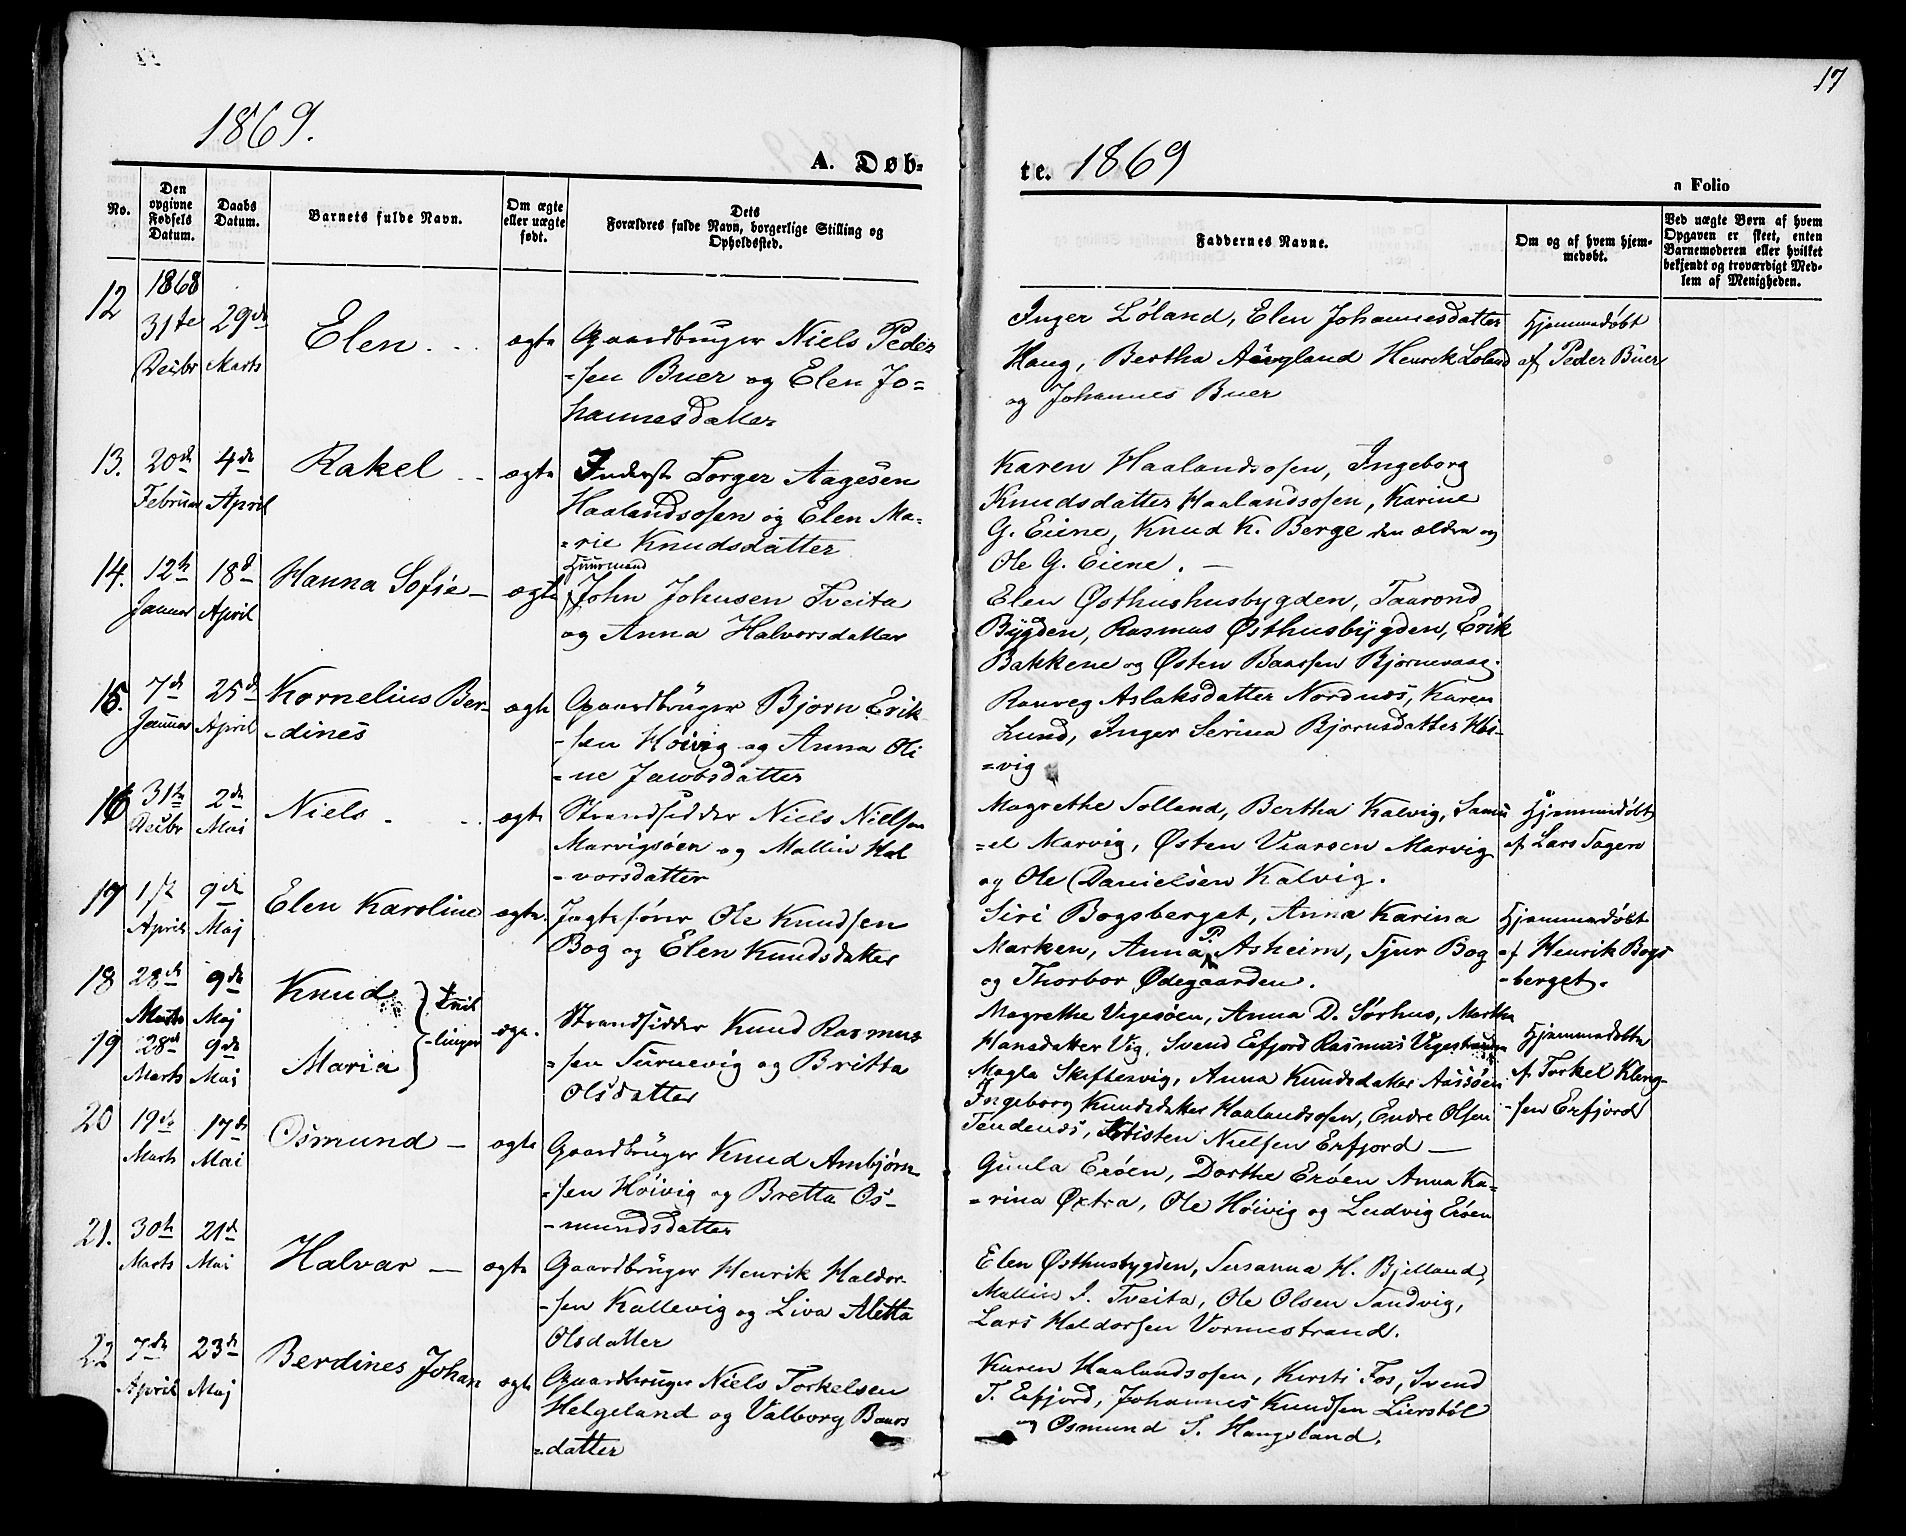 17
1869.
A. Døb-
te. 1869
n Folio
No.
Den opgivne Fødsels Datum.
Daabs Datum.
Barnets fulde Navn.
Om ægte eller uægte født.
Dets Forældres fulde Navn, borgerlige Stilling og Opholdssted.
Faddernes Navne.
Om og af hvem hjemmedøbt.
Ved uægte Børn af hvem Opgaven er skeet, enten Barnemoderen eller hvilket bekjendt og troværdigt Medlem af Menigheden.
12
1868
31te Decbr
29de Marts
Elen
ægte
Gaardbruger Niels Peder
-sen Buer og Elen Jo-
hannesdatter
Inger Løland, Elen Johannesdatter
Haug, Bertha Løland Henrik Løland
og Johannes Buer
Hjemmedøbt
af Peder Buer
13.
20de Februar
4de April
Rakel
ægte
Inderst Torger Aagesen
Haalandsosen og Elen Ma-
-rie Knudsdatter
Karen Haalandsosen, Ingeborg
Knudsdatter Haalandsosen, Karine
G. Eiene, Knud K. Berge den ældre og
Ole G. Eiene.
14.
12te Januar
18de April
Hanna Sofie
ægte
Huusmand
John Johnsen Tveita
og Anna Halvorsdatter
Elen Østhushusbygden, Taarond
Bygden, Rasmus Østhusbygden, Erik
Bakkene og Østen Baarsen Bjornevaag.
15.
7de Januar
25de April
Kornelius Ber-
-dines
ægte
Gaardbruger Bjorn Erik
-sen Høivig og Anna Oli
-ne Jacobsdatter
Ranveg Aslaksdatter Nordnæs, Karen
Lund, Inger Serina Bjornsdatter Høi-
-vig
16
31te Decbr
2de Mai
Niels
ægte
Strandsidder Niels Nielsen
Marvigsøen og Mallin Hal
-vorsdatter
Magrethe Tolland, Bertha Kalvig, Samu
-el Marvig, Østen Viarsen Marvig
og Ole Danielsen Kalvig.
Hjemmedøbt
af Lars Fagero
17
1ste April
9de Maj
Elen Karoline
ægte.
Jagtefører Ole Knudsen
Bog og Elen Knudsdatter
Siri Bogsberget, Anna Karina
Marken, Anna P. Asheim, Tjur Bog
og Thorbor Ødegaarden.
Hjemmedøbt
af Henrik Bogs
-berget.
18
28de Marts
9de Maj
Knud
Tvil
-linger
19
28de Marts
9de Mai
Maria
ægte.
Strandsidder Knud Rasmus
-sen Turnevig og Britta
Olsdatter
Magrethe Vigesøen, Anna D. Sørhus, Martha
Hansdatter Vig, Svend Erfjord Rasmus Vigestranden
Magla Skiftesvig, Anna Knudsdatter Aassøen
Ingeborg Knudsdatter Haalandsosen, Endre Olsen
Tendenæs, Kristen Nielsen Erfjord
Hjemmedøbte
af Torkel Kleng-
-sen Erfjord
20
19de Marts
17de Mai
Osmund
ægte
Gaardbruger Knud Ambjørn
-sen Høivig og Bretta Os-
-mundsdatter
Gunla Erøen, Dorthe Erøen Anna Ka-
-rina Øxtra, Ole Høivig og Ludvig Erøen
21.
30te Marts
21de Mai
Halvar
ægte
Gaardbruger Henrik Haldor
-sen Kallevig og Liva Aletta
Olsdatter
Elen Østhusbygden, Susanna H. Bjelland,
Mallin J. Tveita, Ole Olsen Sandvig,
Lars Haldorsen Vormestrand.
22
7de April
23de Maj
Berdines Johan
ægte
Gaardbruger Niels Torkelsen
Helgeland og Valborg Baars
-datter
Karen Haalandsosen, Kirsti Fos, Svend
T. Erfjord, Johannes Knudsen Lierstøl
og Osmund S. Haugsland.